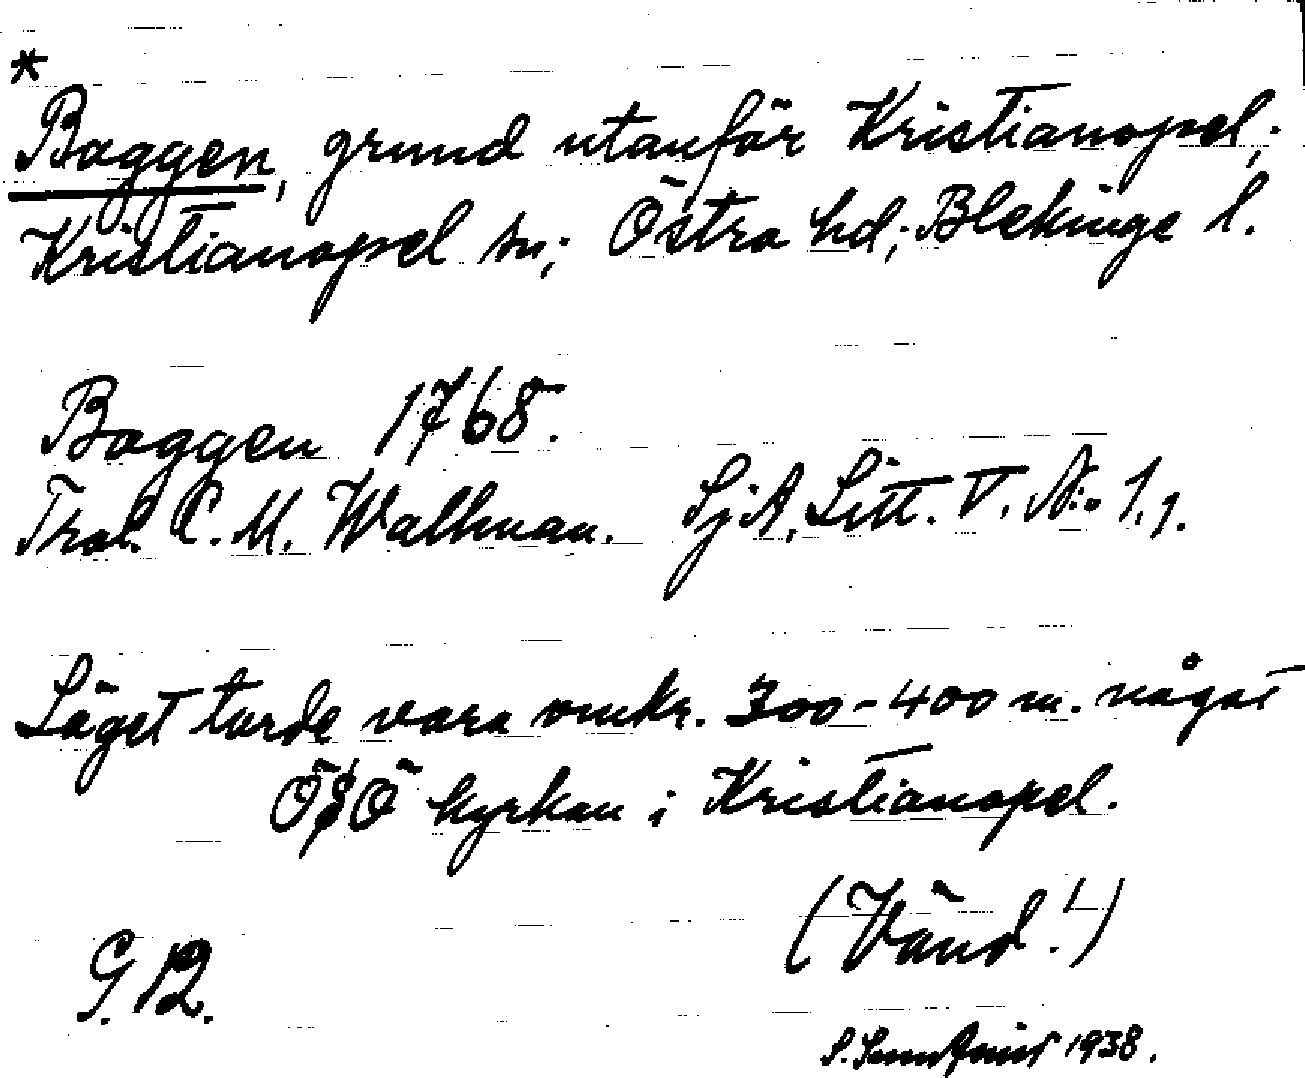 *
Baggen, grund utanför Kristianopel;
Kristianopel sn; Östra hd; Blekinge l.
Baggen 1768.
Trol. C. M. Wallman. SjA, Litt. V. No 1,1.
Läget torde vara omkr. 300-400 m. något
ÖSÖ kyrkan i Kristianopel.
(Vänd!)
G. 12.
S. 1938.